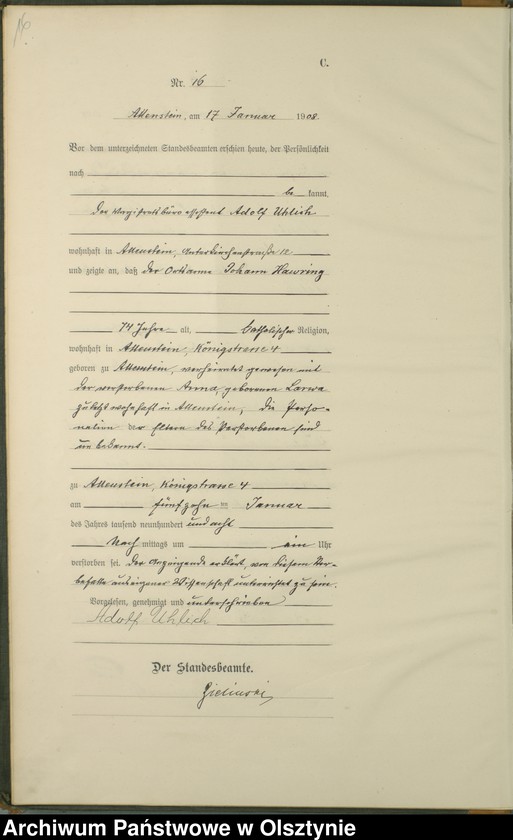 16.
C.
Nr. 16
Allenstein, am 17 Januar 1908.
Vor dem unterzeichneten Standesbeamten erschien heute, der Persönlichkeit
nach
be kannt,
der Magistratsbüroassistent Adolf Uhlich
wohnhaft in Allenstein, Unterkirchenstraße 12
und zeigte an, daß der Ortsarme Johann Hawring
74 Jahre alt, katholischer Religion,
wohnhaft in Allenstein, Königstrasse 4
geboren zu Allenstein, verheiratet gewesen mit
der verstorbenen Anna, geborenen Larwa
zuletzt wohnhaft in Allenstein, die Perso-
nalien der Eltern des Verstorbenen sind
unbekannt.
zu Allenstein, Königstrasse 4
am fünfzehn ten Januar
des Jahres tausend neunhundert und acht
Nach mittags um ein Uhr
verstorben sei. Der Anzeigende erklärt, von diesem Ster-
befalle aus eigener Wissenschaft unterrichtet zu sein.
Vorgelesen, genehmigt und unterschrieben
Adolf Uhlich
Der Standesbeamte.
Zielinski
Archiwum Państwowe w Olsztynie